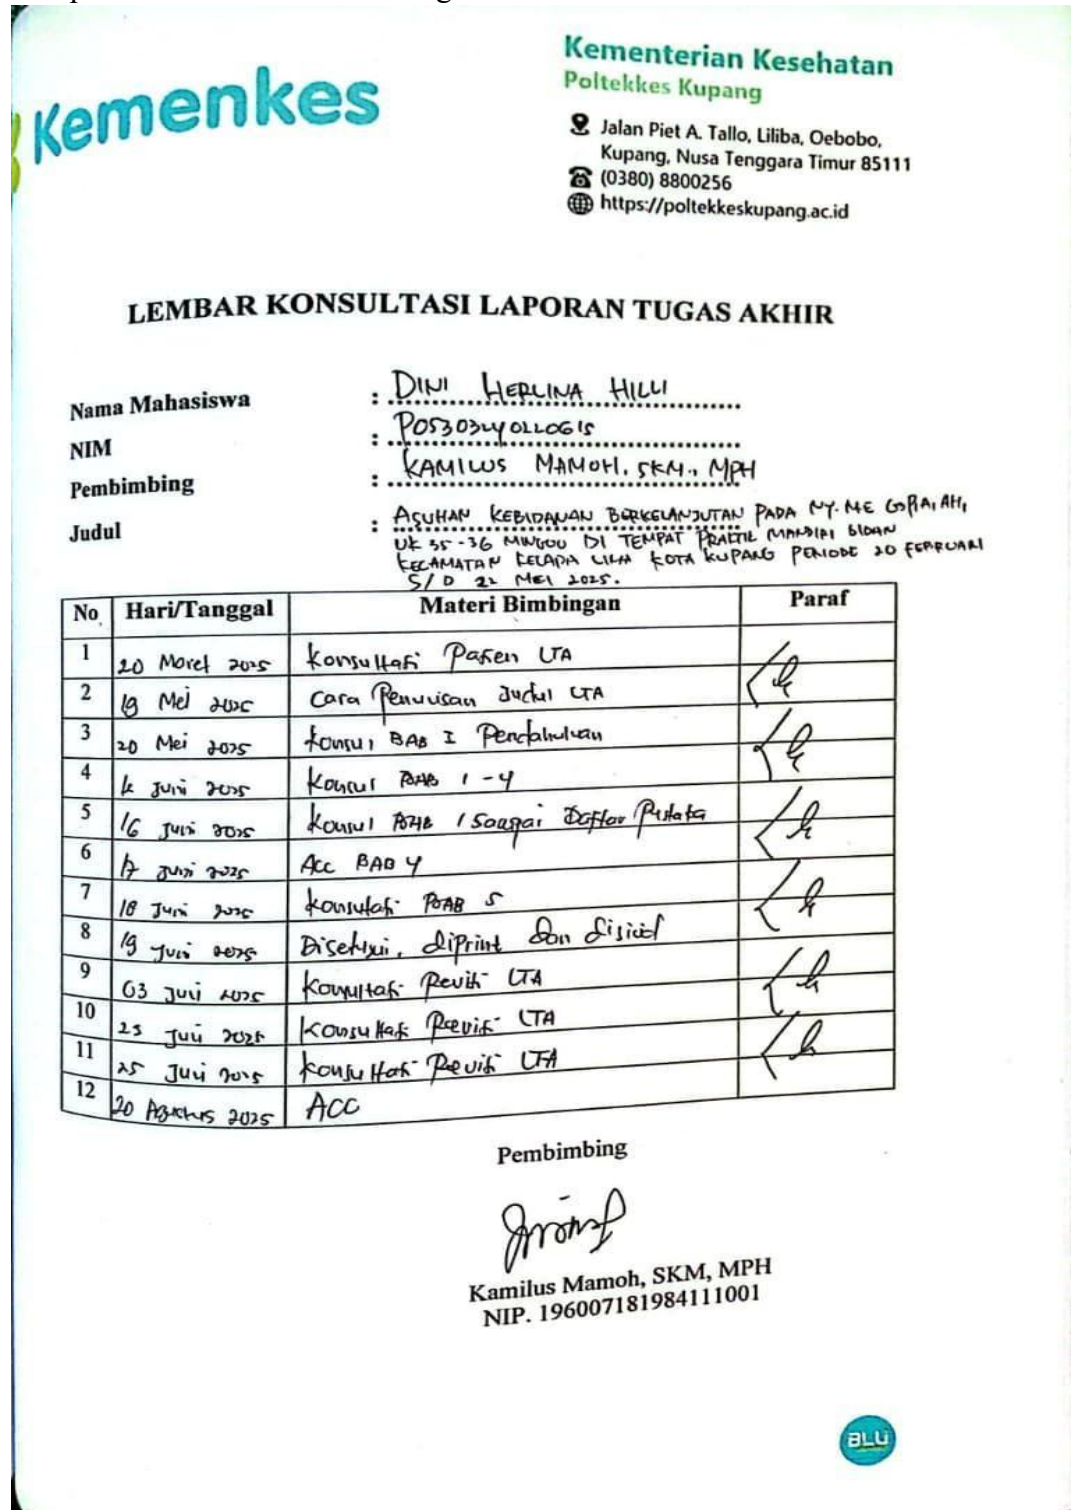 Kemenkes
Kementerian Kesehatan
Poltekkes Kupang
Jalan Piet A. Tallo, Liliba, Oebobo,
Kupang, Nusa Tenggara Timur 85111
(0380) 8800256
https://poltekkeskupang.ac.id
LEMBAR KONSULTASI LAPORAN TUGAS AKHIR
Nama Mahasiswa : DINI HERLINA HILLI
NIM : PO5303240220615
Pembimbing : KAMILUS MAMOH, SKM., MPH
Judul : ASUHAN KEBIDANAN BERKELANJUTAN PADA NY. M.E
UK 35-36 MINGGU DI TEMPAT PRAKTIK MANDIRI BIDAN
KECAMATAN KELAPA LIMA KOTA KUPANG PERIODE 20 FEBRUARI
S/D 22 MEI 2025.
No Hari/Tanggal Materi Bimbingan Paraf
1 20 Maret 2025 Konsultasi Pasien LTA
2 19 Mei 2025 Cara Penulisan Judul LTA
3 20 Mei 2025 Konsul BAB I Pendahuluan
4 Juni 2025 Konsul BAB 1 - 4
5 16 Juni 2025 Konsul BAB 1 Sampai Daftar Pustaka
6 17 Juni 2025 Acc BAB 4
7 18 Juni 2025 Konsultasi BAB 5
8 19 Juni 2025 Disetujui, diprint dan
9 03 Juli 2025 Konsultasi Revisi LTA
10 23 Juli 2025 Konsultasi Revisi LTA
11 25 Juli 2025 Konsultasi Revisi LTA
12 20 Agustus 2025 ACC
Pembimbing
Kamilus Mamoh, SKM, MPH
NIP. 196007181984111001
BLU